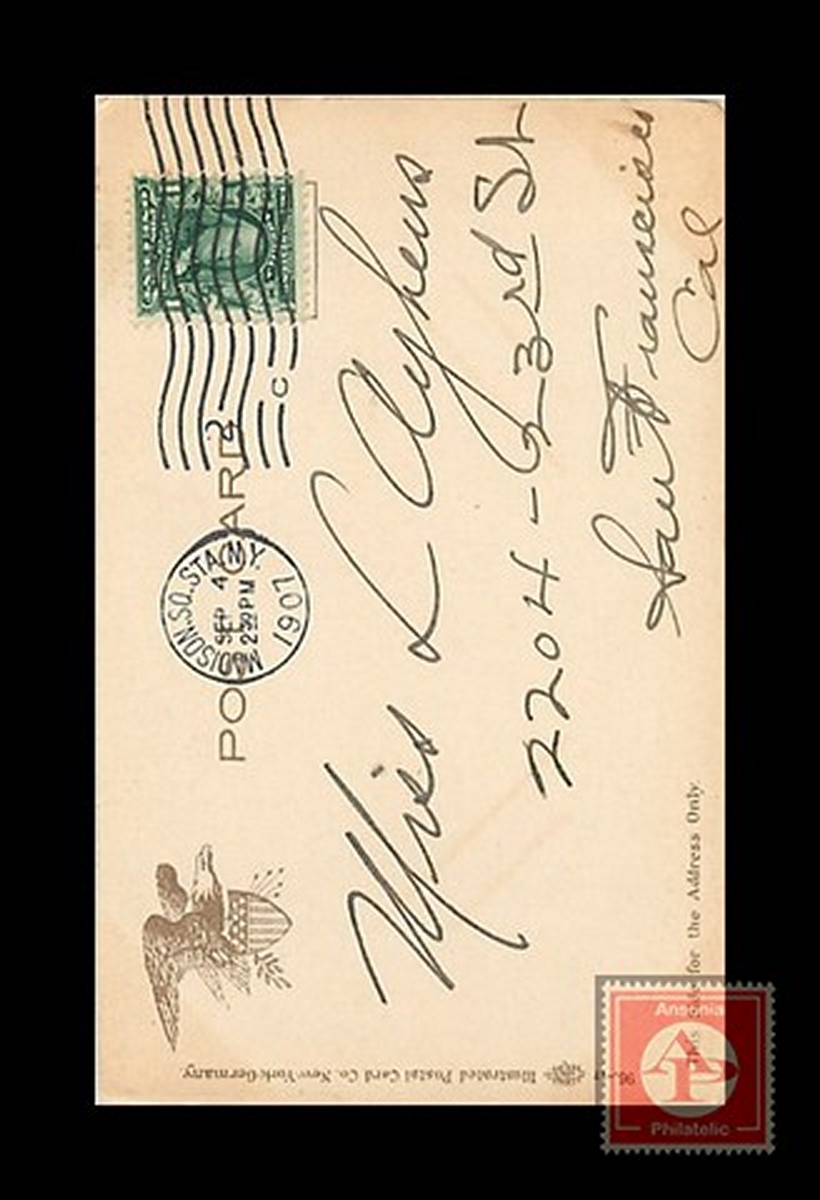 POST CARD
MADISON SQ. STA. N.Y.
SEP 4
2 30 PM
1907
C
Miss L Clyhens
2204-23rd St
San Francisco
Cal
This side for the Address Only.
Illustrated Postal Card Co. New-York-Germany.
Ansonia
AP
Philatelic